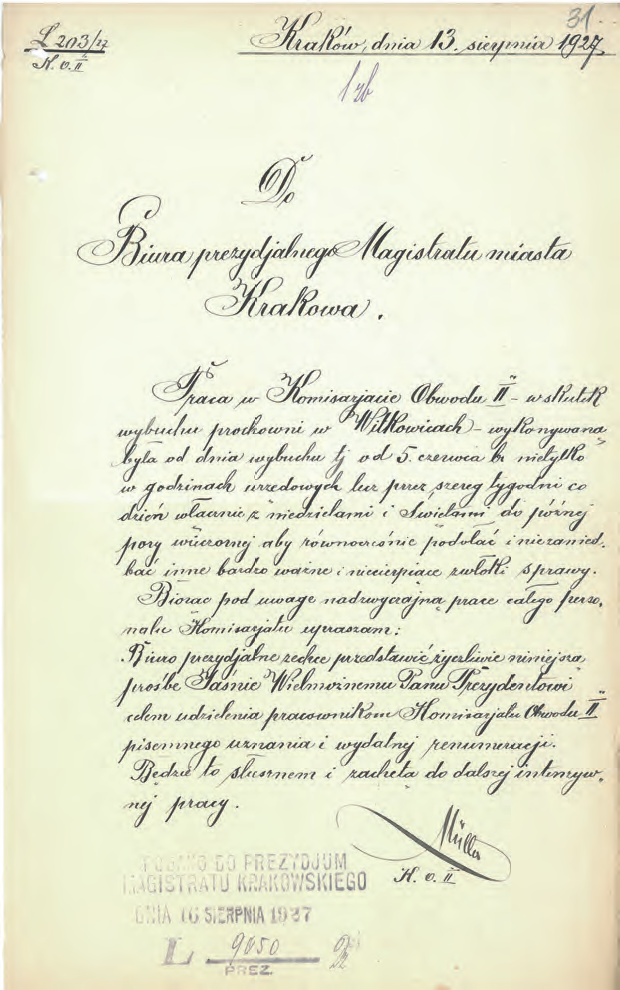 31.
L 203/27
K. O. II
Kraków, dnia 13. sierpnia 1927
Do
Biura prezydjalnego Magistratu miasta
Krakowa.
Praca w Komisarjacie Obwodu II - wskutek
wybuchu prochowni w Witkowicach - wykonywana
była od dnia wybuchu tj od 5. czerwca br nietylko
w godzinach urzędowych lecz przez szereg tygodni co
dzień włącznie z niedzielami i świętami do późnej
pory wieczornej aby równocześnie podołać i niezanied-
bać inne bardzo ważne i niecierpiące zwłoki sprawy.
Biorąc pod uwagę nadzwyczajną pracę całego perso-
nalu Komisarjatu upraszam:
Biuro prezydjalne zechce przedstawić życzliwie niniejszą
prośbę Jaśnie Wielmożnemu Panu Prezydentowi
celem udzielenia pracownikom Komisarjatu Obwodu II
pisemnego uznania i wydatnej renumeracji.
Będzie to słusznem i zachętą do dalszej intenzyw-
nej pracy.
Müller
K. O. II
PODANO DO PREZYDJUM
MAGISTRATU KRAKOWSKIEGO
DNIA 16 SIERPNIA 1927
L 9050
PREZ.